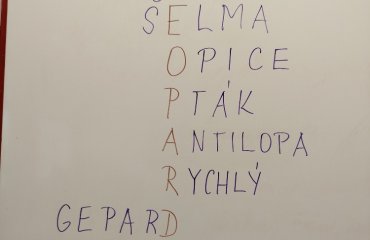 ŠELMA
OPICE
PTÁK
ANTILOPA
RYCHLÝ
GEPARD